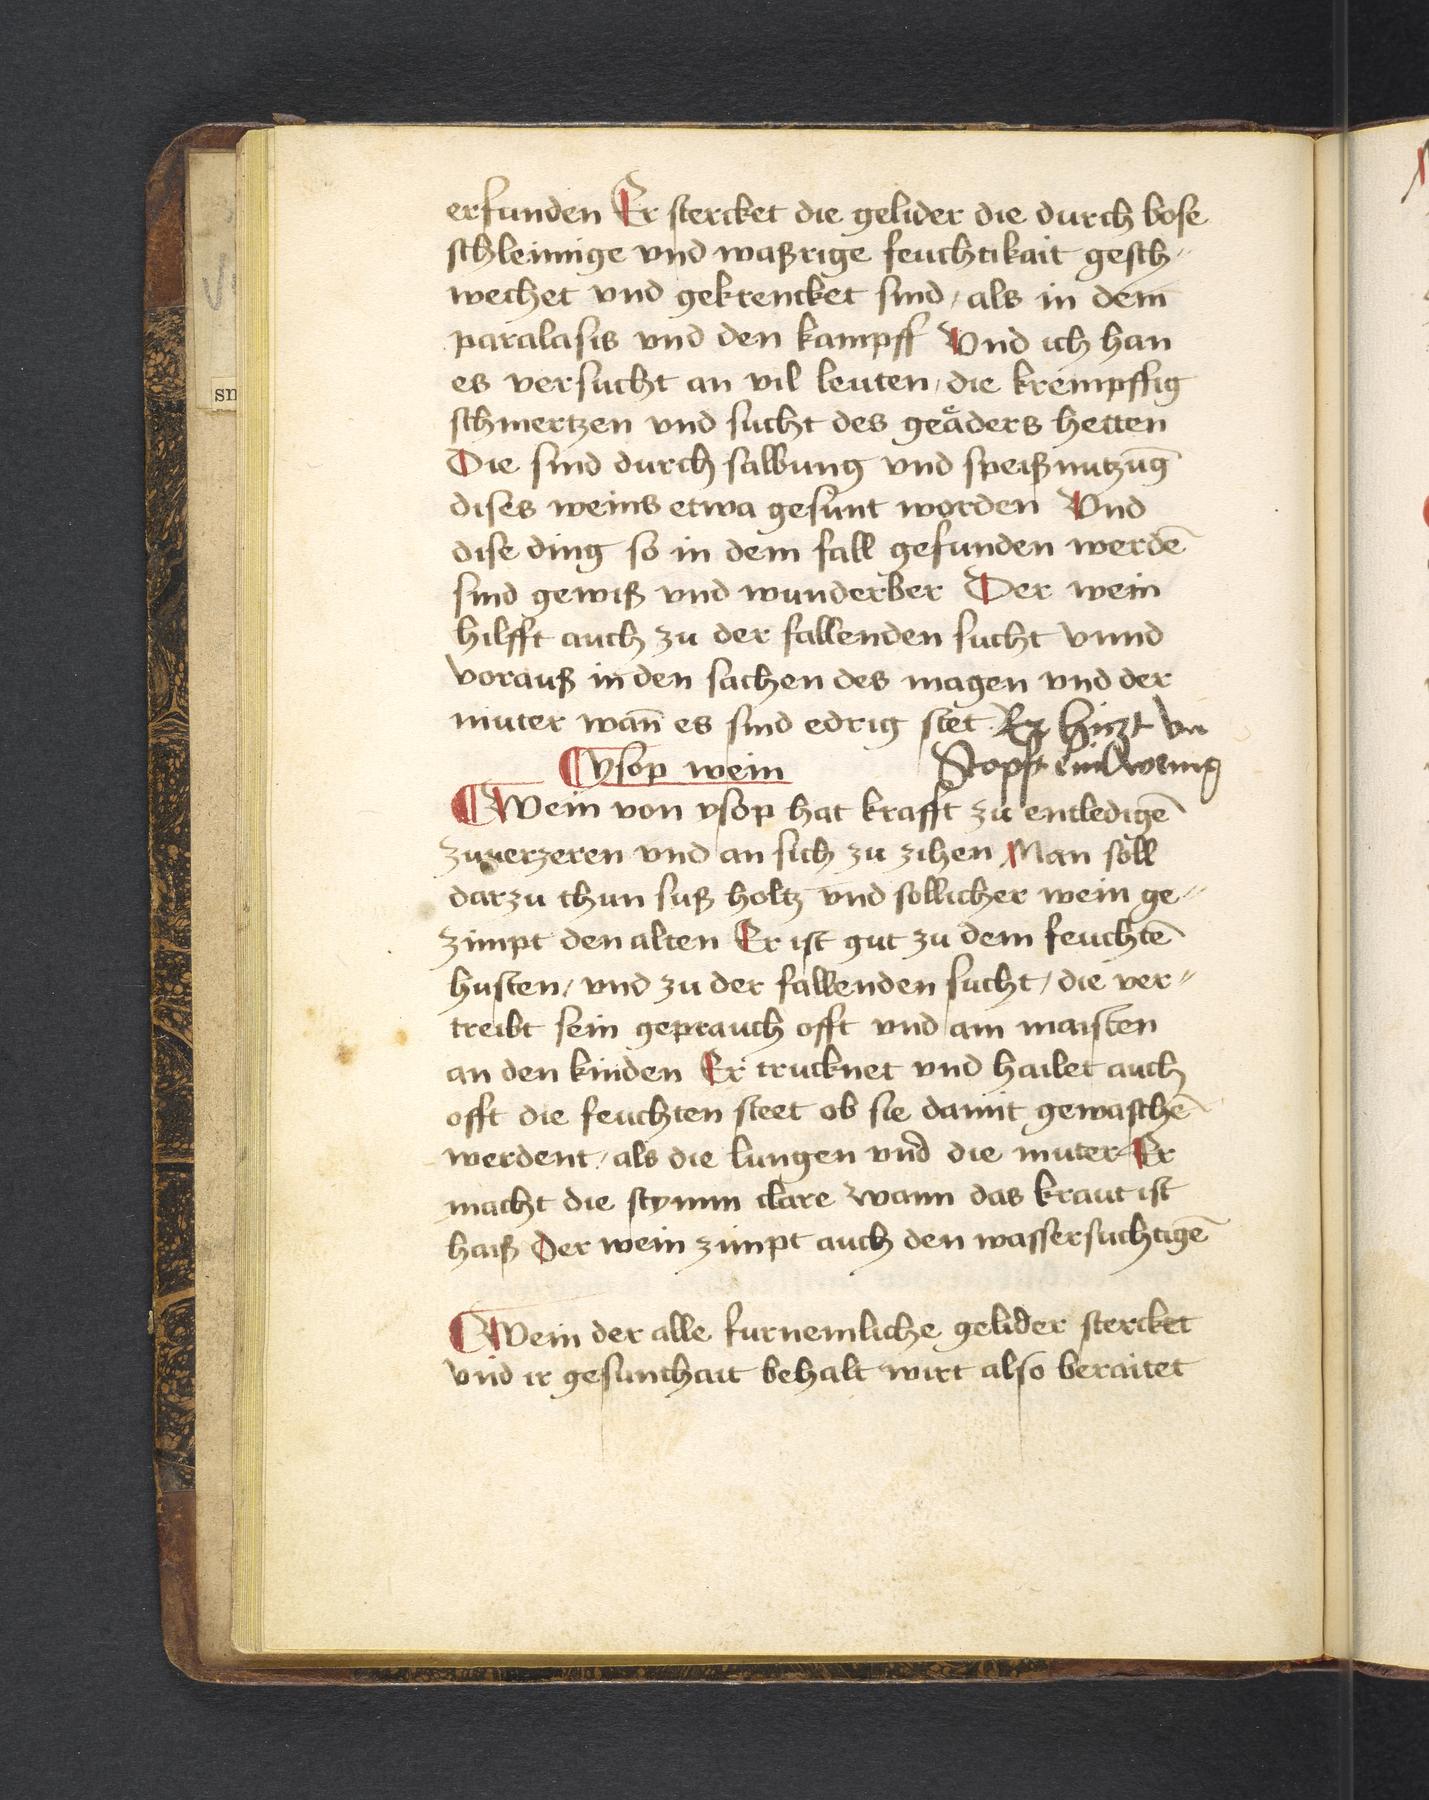 erfunden Er stercket die gelider die durch bose
schleimige vnd waßrige feuchtikait gesch⸗
wechet vnd gekrencket sind / als in dem
paralasis vnd den kampff Vnd ich han
es versucht an vil leuten / die krempffig
schmertzen vnd sucht des geaͤders hetten
Die sind durch salbung vnd speißnutzūg
dises weins etwa gesunt worden Vnd
dise ding so in dem fall gefunden werdē
sind gewiß vnd wunderber Der wein
hilfft auch zu der fallenden sucht vnnd
vorauß in den sachen des magen vnd der
muter wan̄ es sind edrig stet Er hizt vn
Stopft ein wenig
¶ ysop wein
¶ Wein von ysop hat krafft zu entledigē
zuuerzeren vnd an sich zu zihen Man soll
darzu thun suß holtz vnd sollicher wein ge⸗
zimpt den alten Er ist gut zu dem feuchtē
husten / vnd zu der fallenden sucht / die ver⸗
treibt sein geprauch offt vnd am maisten
an den kinden Er trucknet vnd hailet auch
offt die feuchten steet ob sie damit gewaschē
werdent / als die lungen vnd die muter Er
macht die stymm clare wann das kraut ist
haiß Der wein zimpt auch den wassersuchtigē
¶ Wein der alle furnemliche gelider stercket
vnd ir gesunthait behalt wirt also beraitet
sn